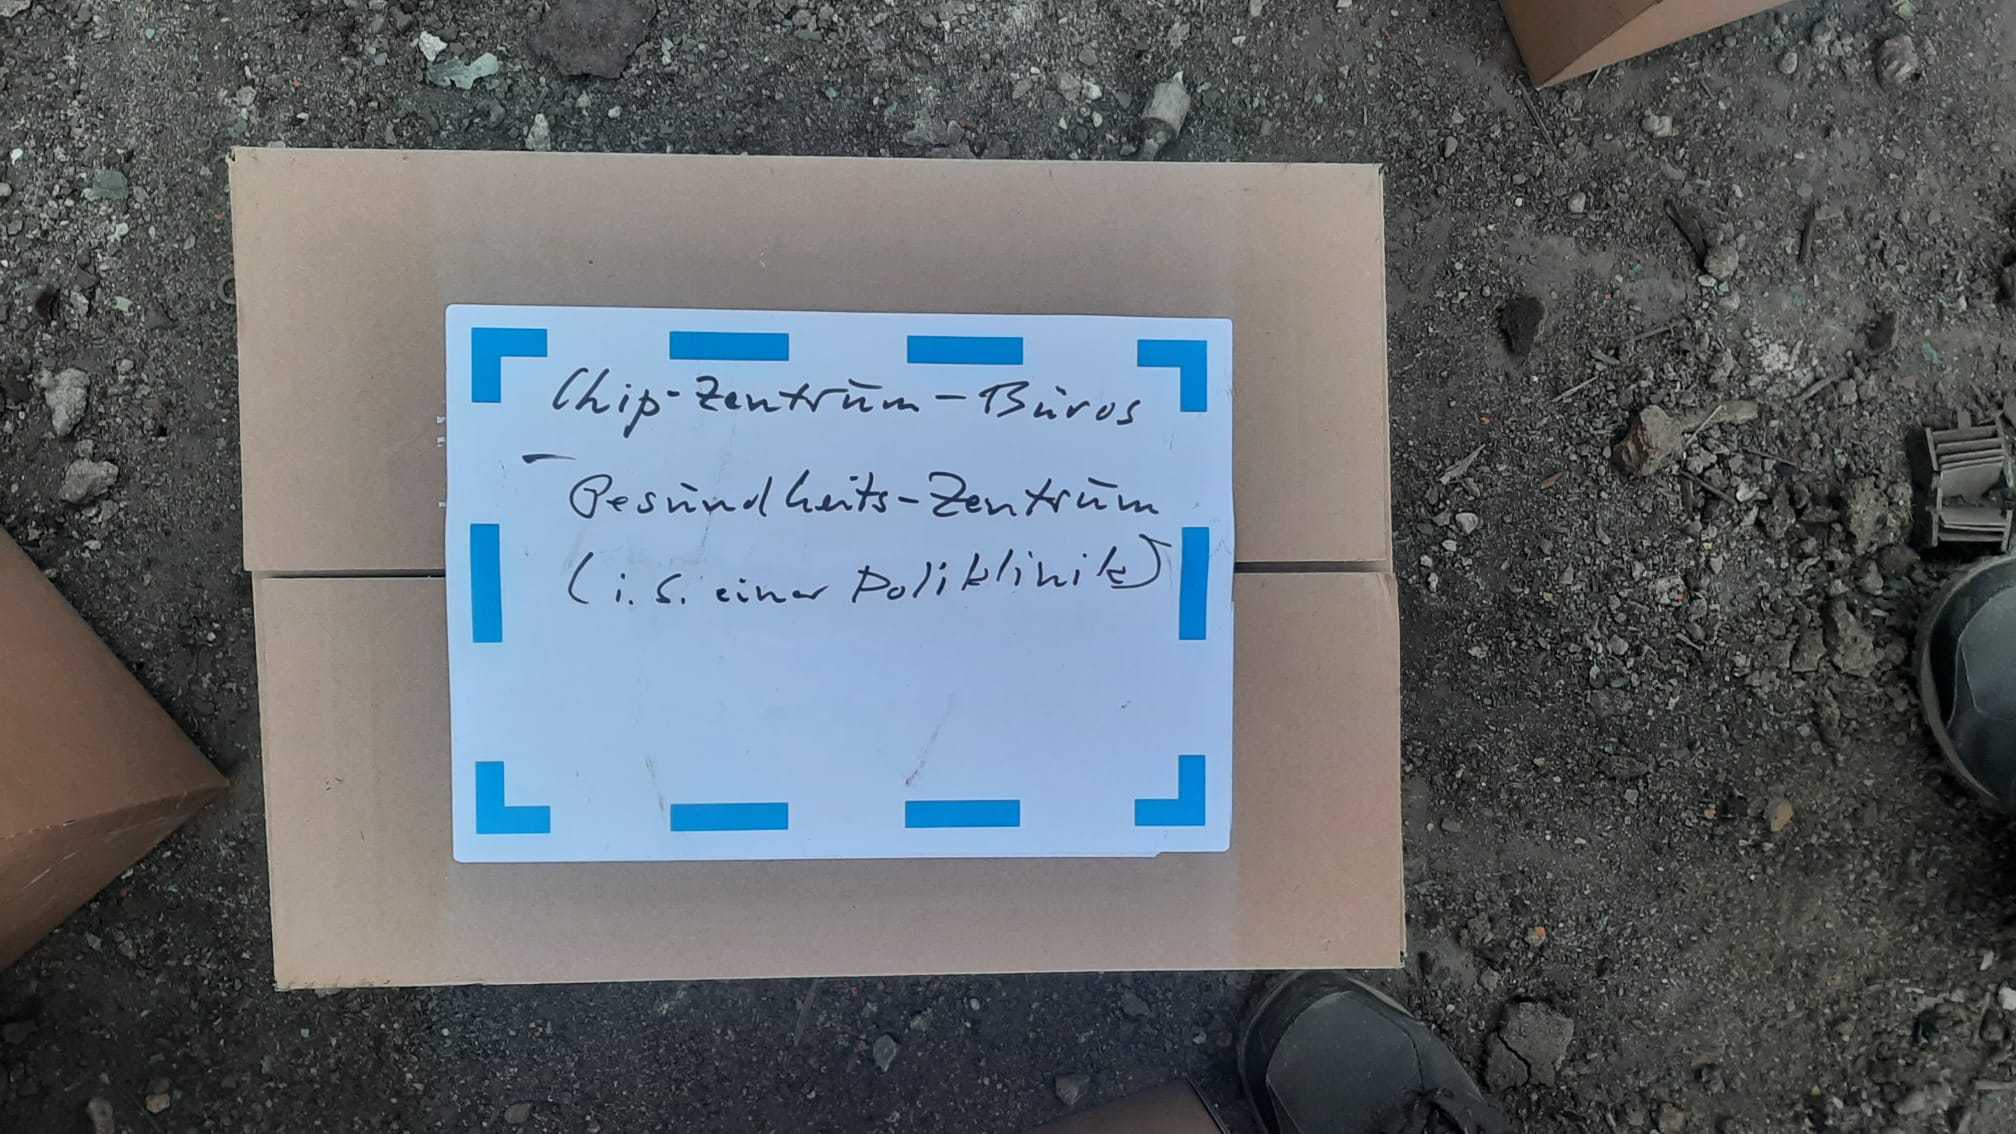 Chip-Zentrum-Büros
– Gesundheits-Zentrum
(i. S. einer Poliklinik)